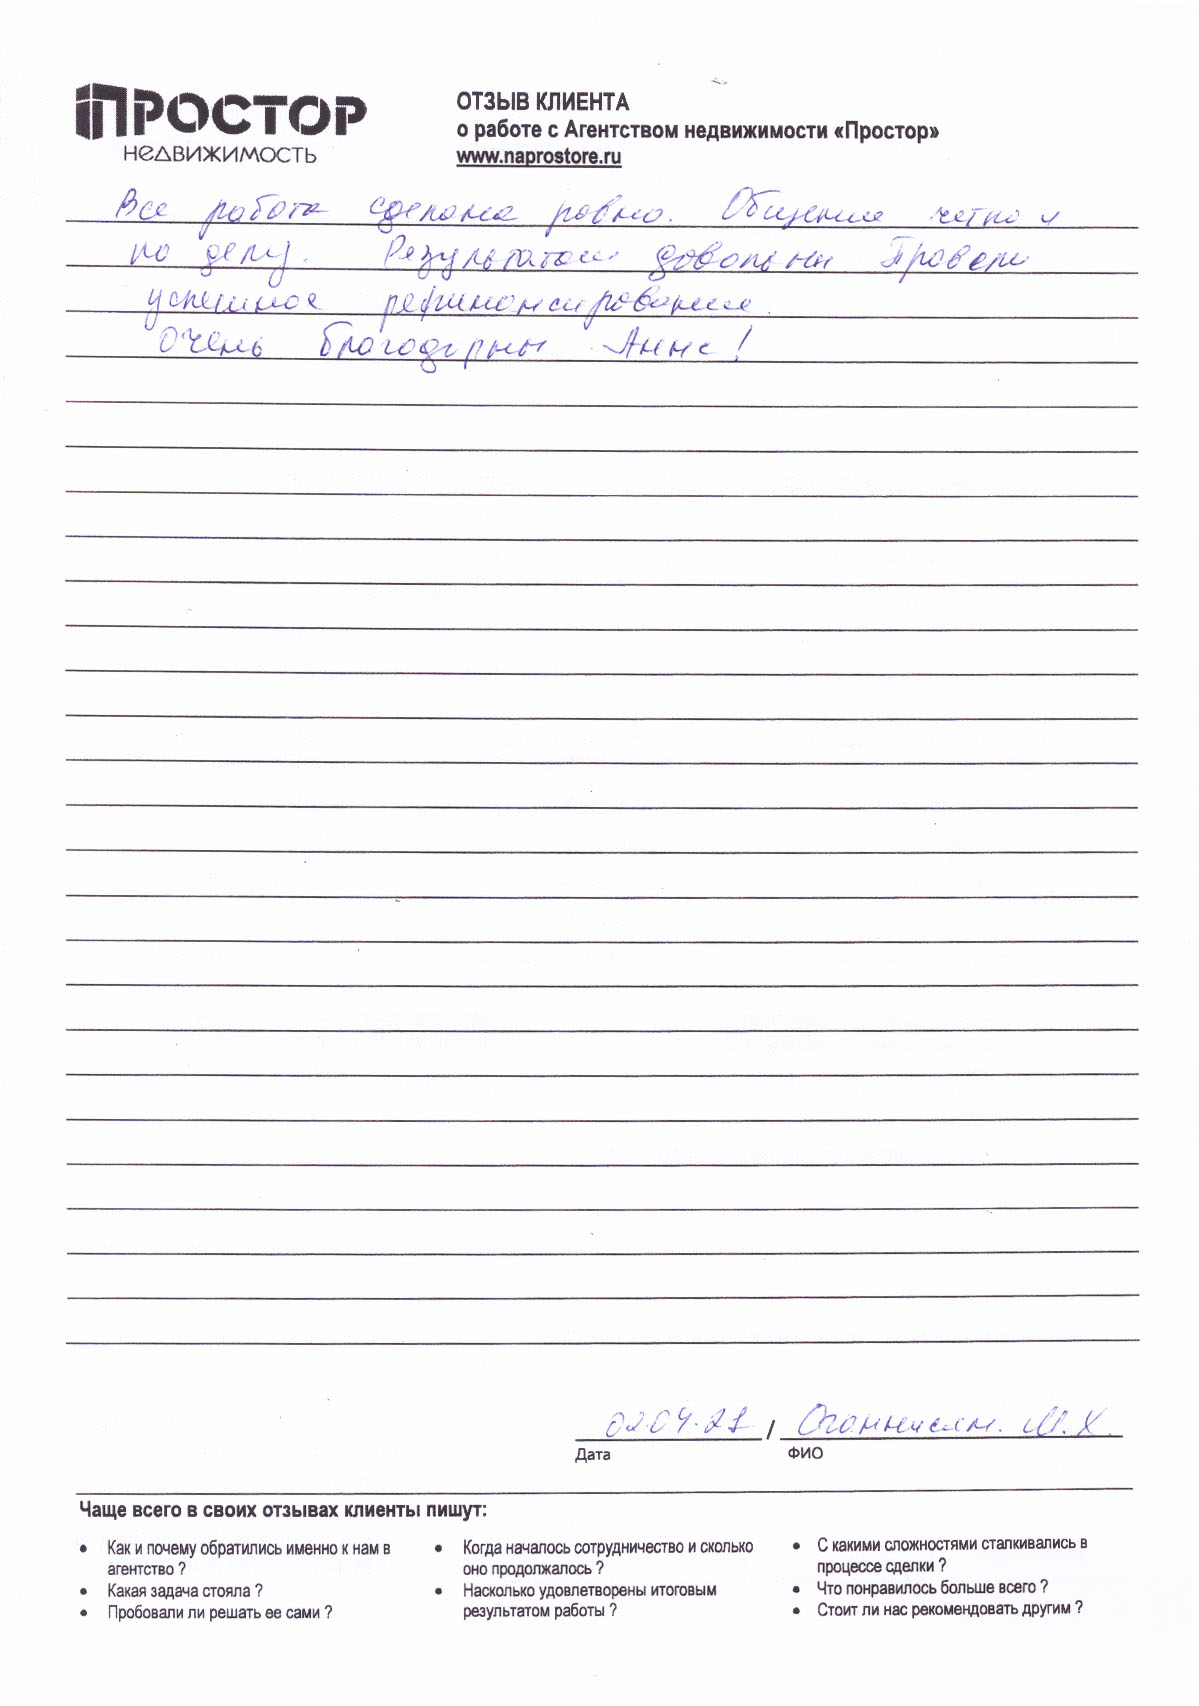 ПРОСТОР
НЕДВИЖИМОСТЬ
ОТЗЫВ КЛИЕНТА
о работе с Агентством недвижимости «Простор»
www.naprostore.ru
Все работа сделана ровно. Общение четко и
по делу. Результатом довольны Провели
успешное рефинансирование.
Очень благодарны Анне!
02.04.21 / Оганнисян. М.Х.
Дата ФИО
Чаще всего в своих отзывах клиенты пишут:
• Как и почему обратились именно к нам в
агентство ?
• Какая задача стояла ?
• Пробовали ли решать ее сами ?
• Когда началось сотрудничество и сколько
оно продолжалось ?
• Насколько удовлетворены итоговым
результатом работы ?
• С какими сложностями сталкивались в
процессе сделки ?
• Что понравилось больше всего ?
• Стоит ли нас рекомендовать другим ?